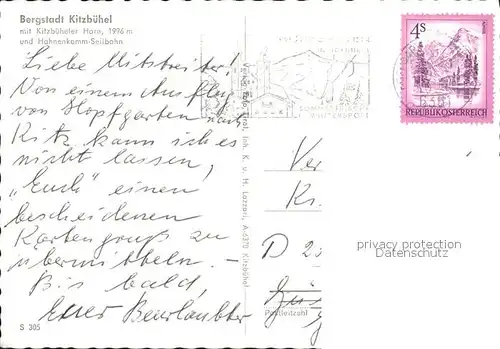 Bergstadt Kitzbühel
mit Kitzbüheler Horn, 1996 m
und Hahnenkamm-Seilbahn
Liebe Mitstreiter!
Von einem Ausflug
von Hopfgarten nach
Kitz kann ich es
nicht lassen,
"Euch" einen
bescheidenen
Kartengruß zu
übermitteln. –
Bis bald,
Euer Beurlaubter
S 305
Inh. K. u. H. Lazzari, A-6370 Kitzbühel
SOMMER
WINTERSPORT
4S
REPUBLIK ÖSTERREICH
Ver
Kr.
D 2
Postleitzahl
privacy protection
Datenschutz